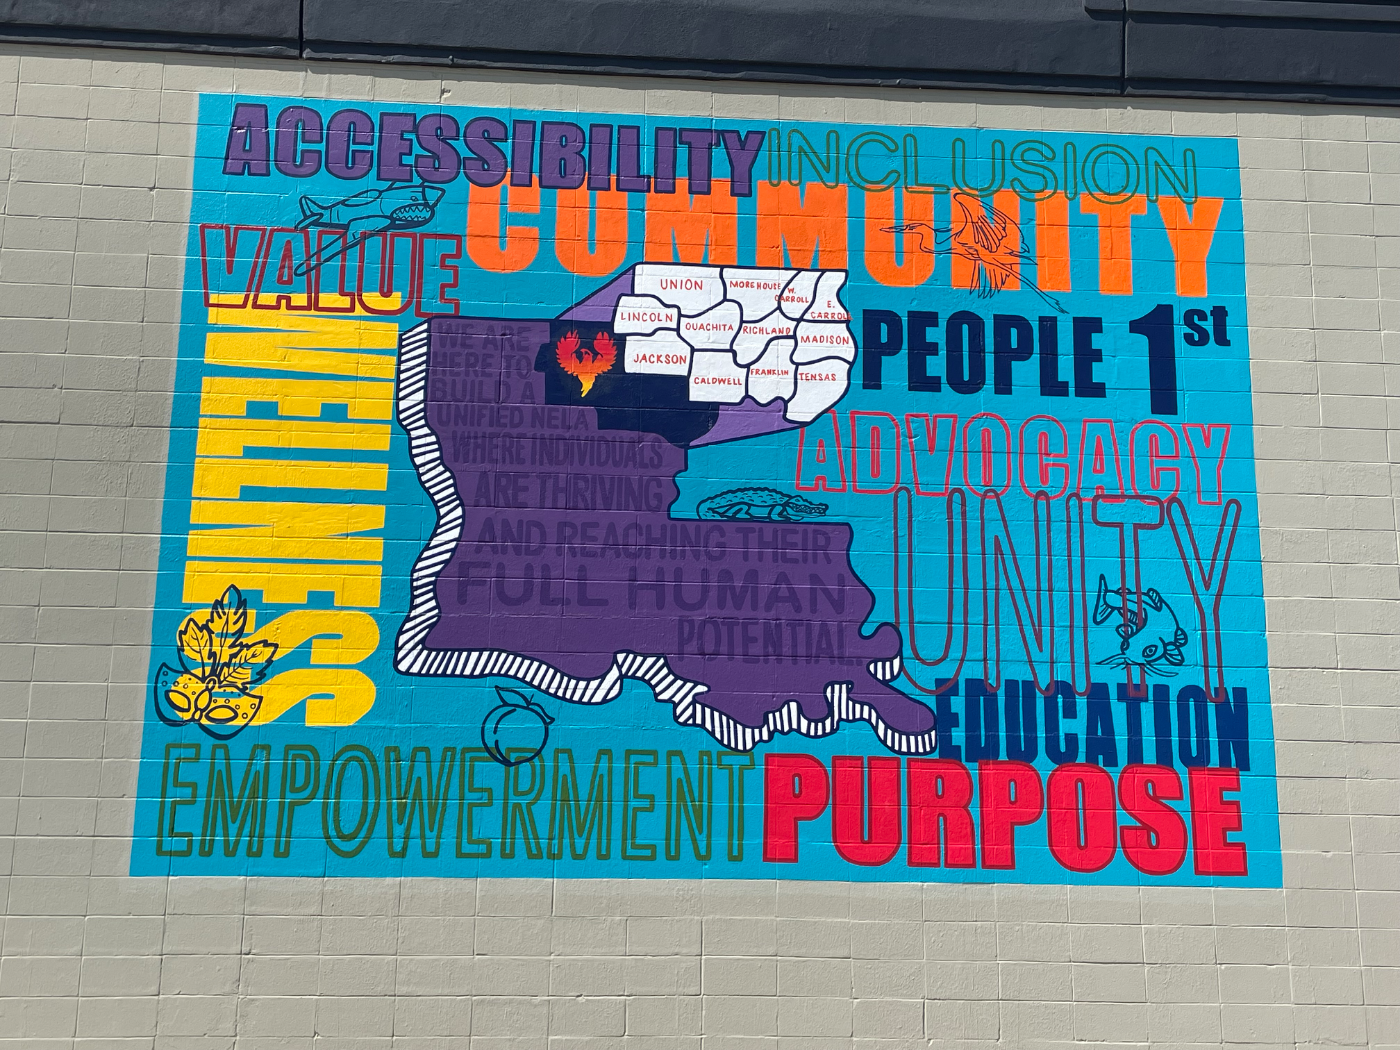 ACCESSIBILITY
INCLUSION
COMMUNITY
VALUE
WELLNESS
PEOPLE 1st
ADVOCACY
UNITY
EDUCATION
EMPOWERMENT
PURPOSE
UNION
MOREHOUSE
W. CARROLL
E. CARROLL
LINCOLN
OUACHITA
RICHLAND
MADISON
JACKSON
CALDWELL
FRANKLIN
TENSAS
WE ARE
HERE TO
BUILD A
UNIFIED NELA
WHERE INDIVIDUALS
ARE THRIVING
AND REACHING THEIR
FULL HUMAN
POTENTIAL.